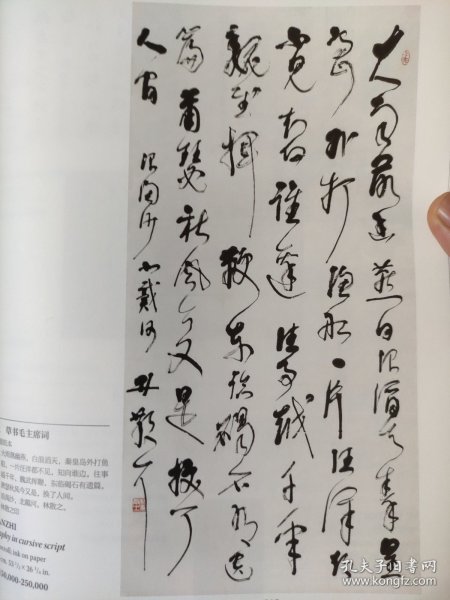 大雨落幽燕白浪滔天秦皇
岛外打鱼船一片汪洋都
不见知向谁边往事越千年
魏武挥鞭东临碣石有遗
篇萧瑟秋风今又是换了
人间 浪淘沙 北戴河 林散之
草书毛主席词
纸本
大雨落幽燕，白浪滔天，秦皇岛外打鱼
船，一片汪洋都不见，知向谁边。往事
越千年，魏武挥鞭，东临碣石有遗篇。
萧瑟秋风今又是，换了人间。
浪淘沙，北戴河，林散之。
散之印
NZHI
phy in cursive script
ink on paper
cm. 53 ½ × 26 ¾ in.
50,000-250,000
孔夫子旧书网
www.kongfz.com